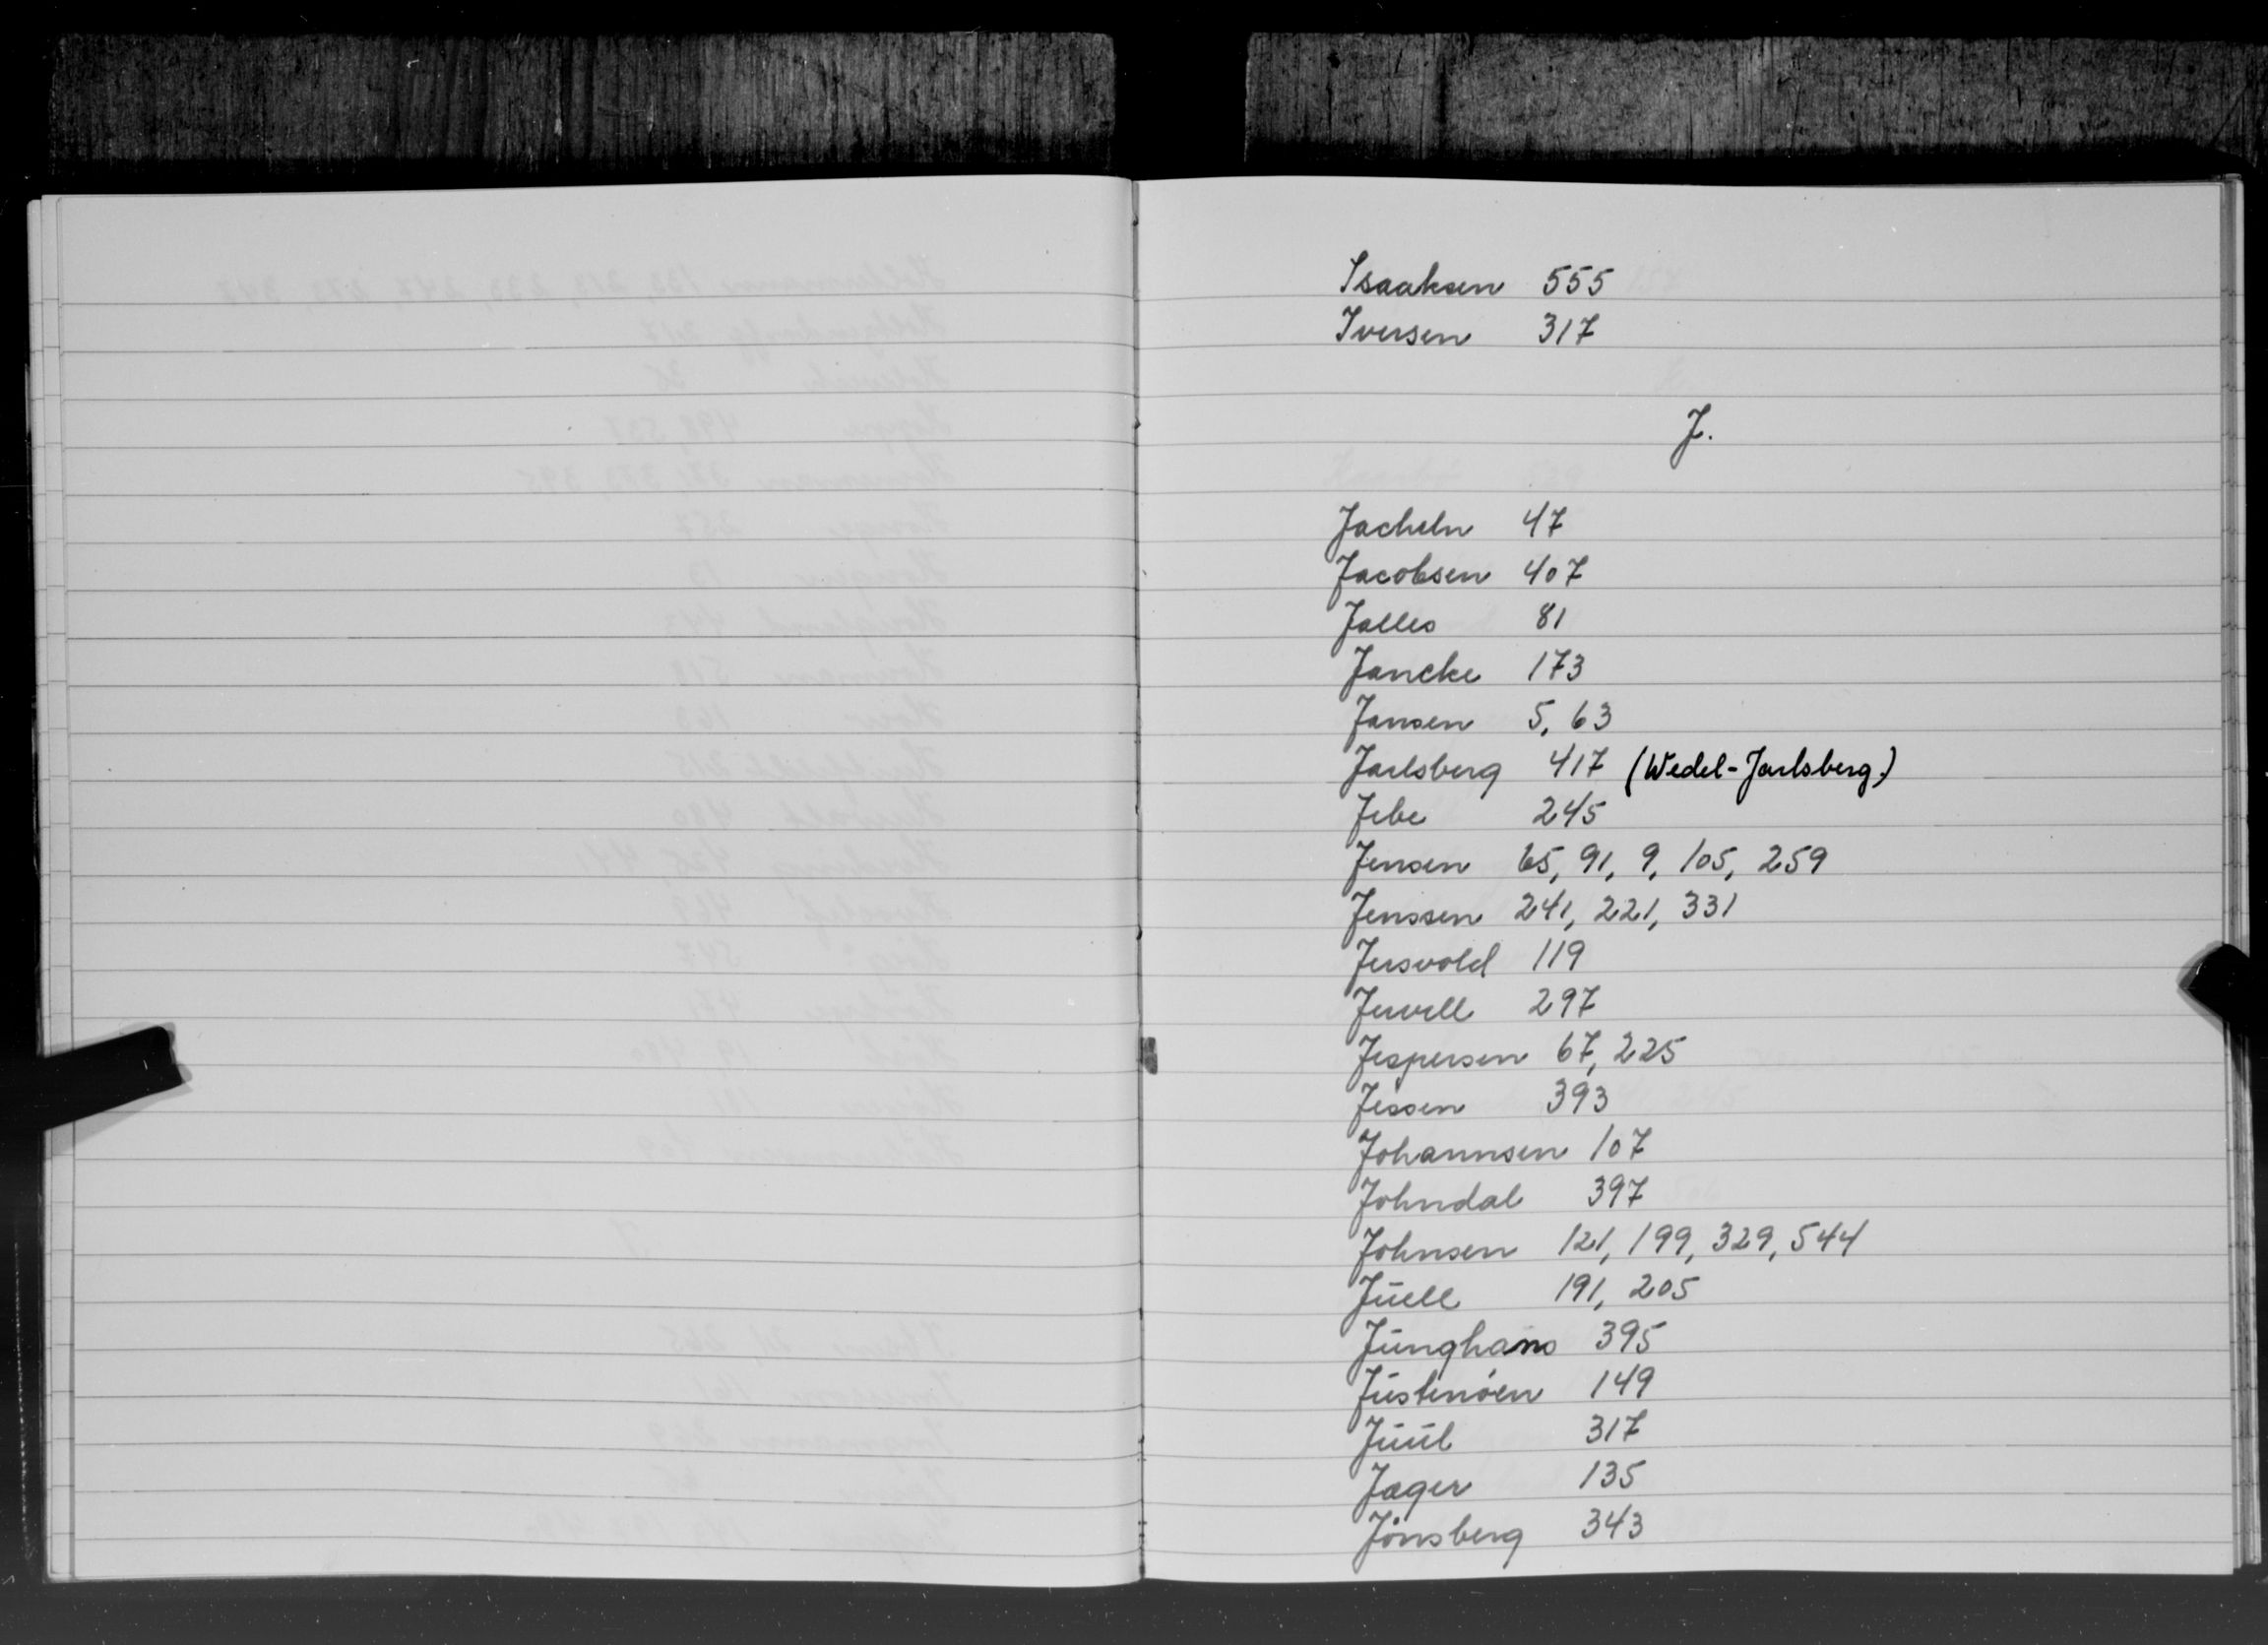 Isaaksen 555
Iversen 317
J.
Jacheln 47
Jacobsen 407
Jalles 81
Jancke 173
Jansen 5, 63
Jarlsberg 417 (Wedel-Jarlsberg.)
Jebe 245
Jensen 65, 91, 9, 105, 259
Jenssen 241, 221, 331
Jersvold 119
Jervell 297
Jespersen 67, 225
Jessen 393
Johannsen 107
Johndal 397
Johnsen 121, 199, 329, 544
Jūell 191, 205
Jūnghans 395
Jūstenöen 149
Jūūl 317
Jager 135
Jönsberg 343